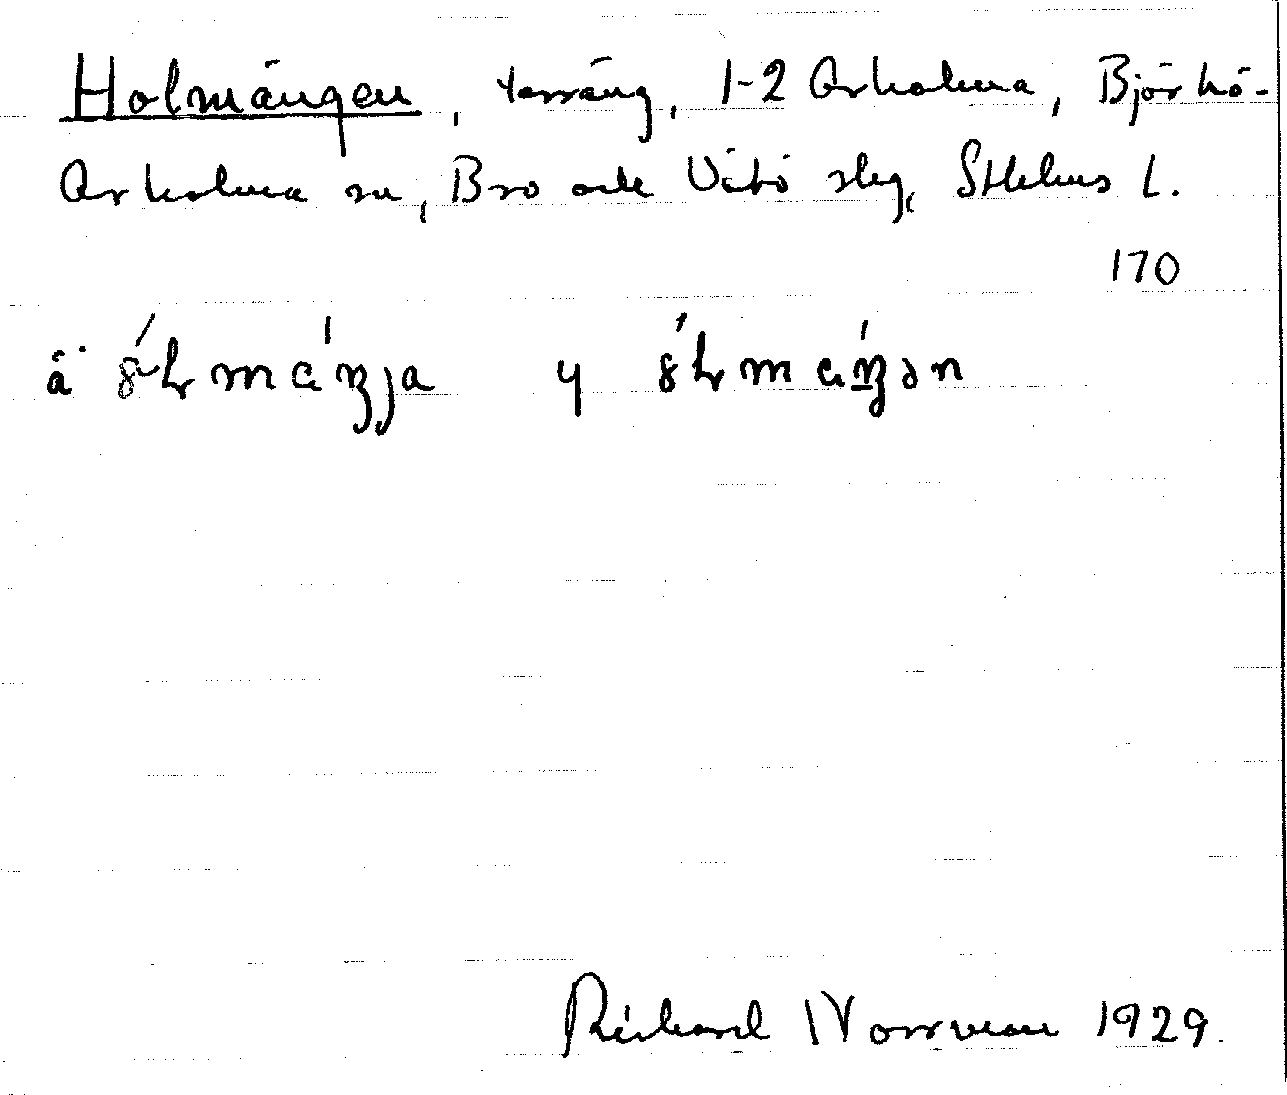 Holmängen, terräng, 1-2 Arholma, Björkö-
Arholma sn, Bro och Vätö slg, Sthlms l.
170
Richard Norrman 1929.